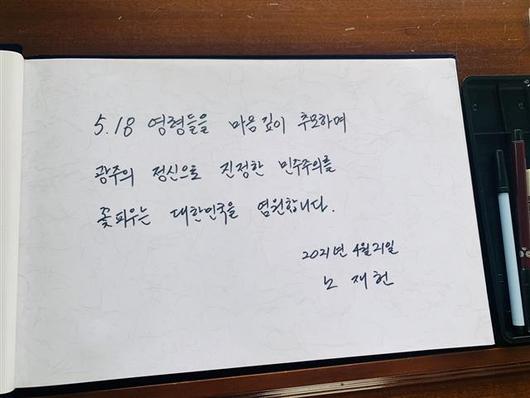 5.18 영령들을 마음깊이 추모하며
광주의 정신으로 진정한 민주주의를
꽃피우는 대한민국을 염원합니다.
2021년 4월 21일
노재헌